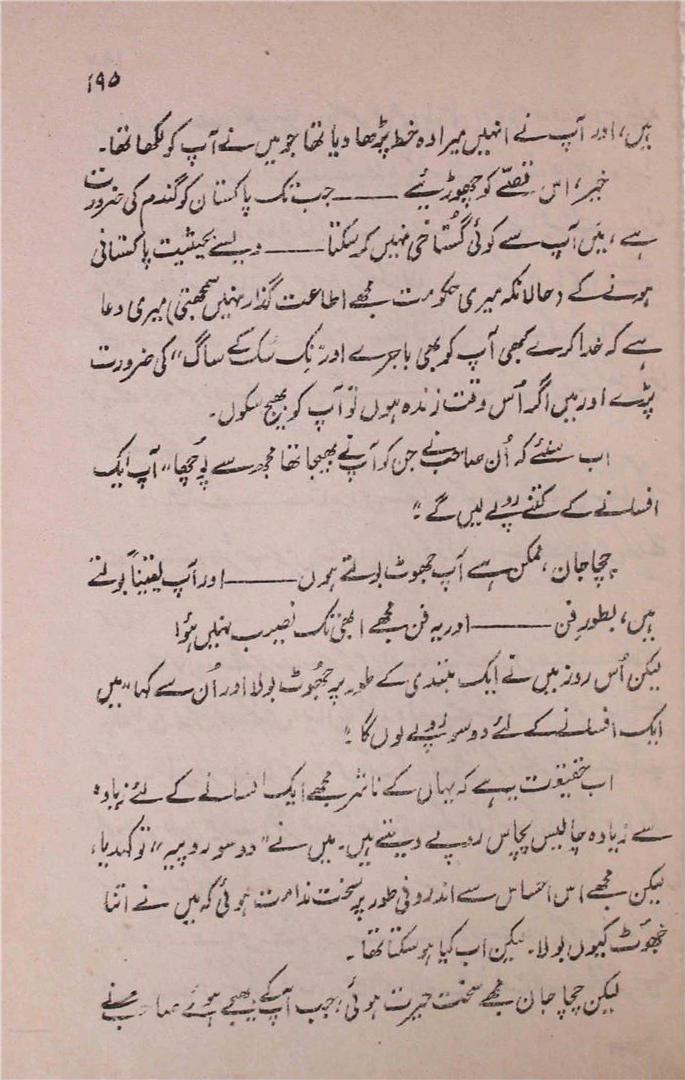 ۱۹۵
ہیں، اور آپ نے انہیں میرا وہ خط پڑھا دیا تھا جو میں نے آپ کو لکھا تھا۔
خیر، اس قصّے کو چھوڑیئے ——— جب تک پاکستان کو گندم کی ضرورت
ہے، میں آپ سے کوئی گستاخی نہیں کر سکتا ——— ویسے بحیثیت پاکستانی
ہونے کے (حالانکہ میری حکومت مجھے اطاعت گذار نہیں سمجھتی) میری دعا
ہے کہ خدا کرے کبھی آپ کو بھی باجرے اور "نِک سُک کے ساگ" کی ضرورت
پڑے اور میں اگر اُس وقت زندہ ہوں تو آپ کو بھیج سکوں۔
اب سنئے کہ اُن صاحب نے جن کو آپ نے بھیجا تھا مجھ سے پُوچھا "آپ ایک
افسانے کے کتنے روپے لیں گے"؟
چچا جان، ممکن ہے آپ جھوٹ بولتے ہوں ——— اور آپ یقیناً بولتے
ہیں، بطورِ فن ——— اور یہ فن مجھے ابھی تک نصیب نہیں ہوُا
لیکن اُس روز میں نے ایک مبتدی کے طور پر جھُوٹ بولا اور اُن سے کہا "میں
ایک افسانے کے لئے دو سو روپے لوں گا"۔
اب حقیقت یہ ہے کہ یہاں کے ناشر مجھے ایک افسانے کے لئے زیادہ
سے زیادہ چالیس پچاس روپے دیتے ہیں۔ میں نے "دو سو روپیہ" تو کہدیا،
لیکن مجھے اس احساس سے اندرونی طور پر سخت ندامت ہوئی کہ میں نے اتنا
جھوٹ کیوں بولا۔ لیکن اب کیا ہو سکتا تھا۔
لیکن چچا جان مجھے سخت حیرت ہوئی، جب آپ کے بھیجے ہوئے صاحب نے